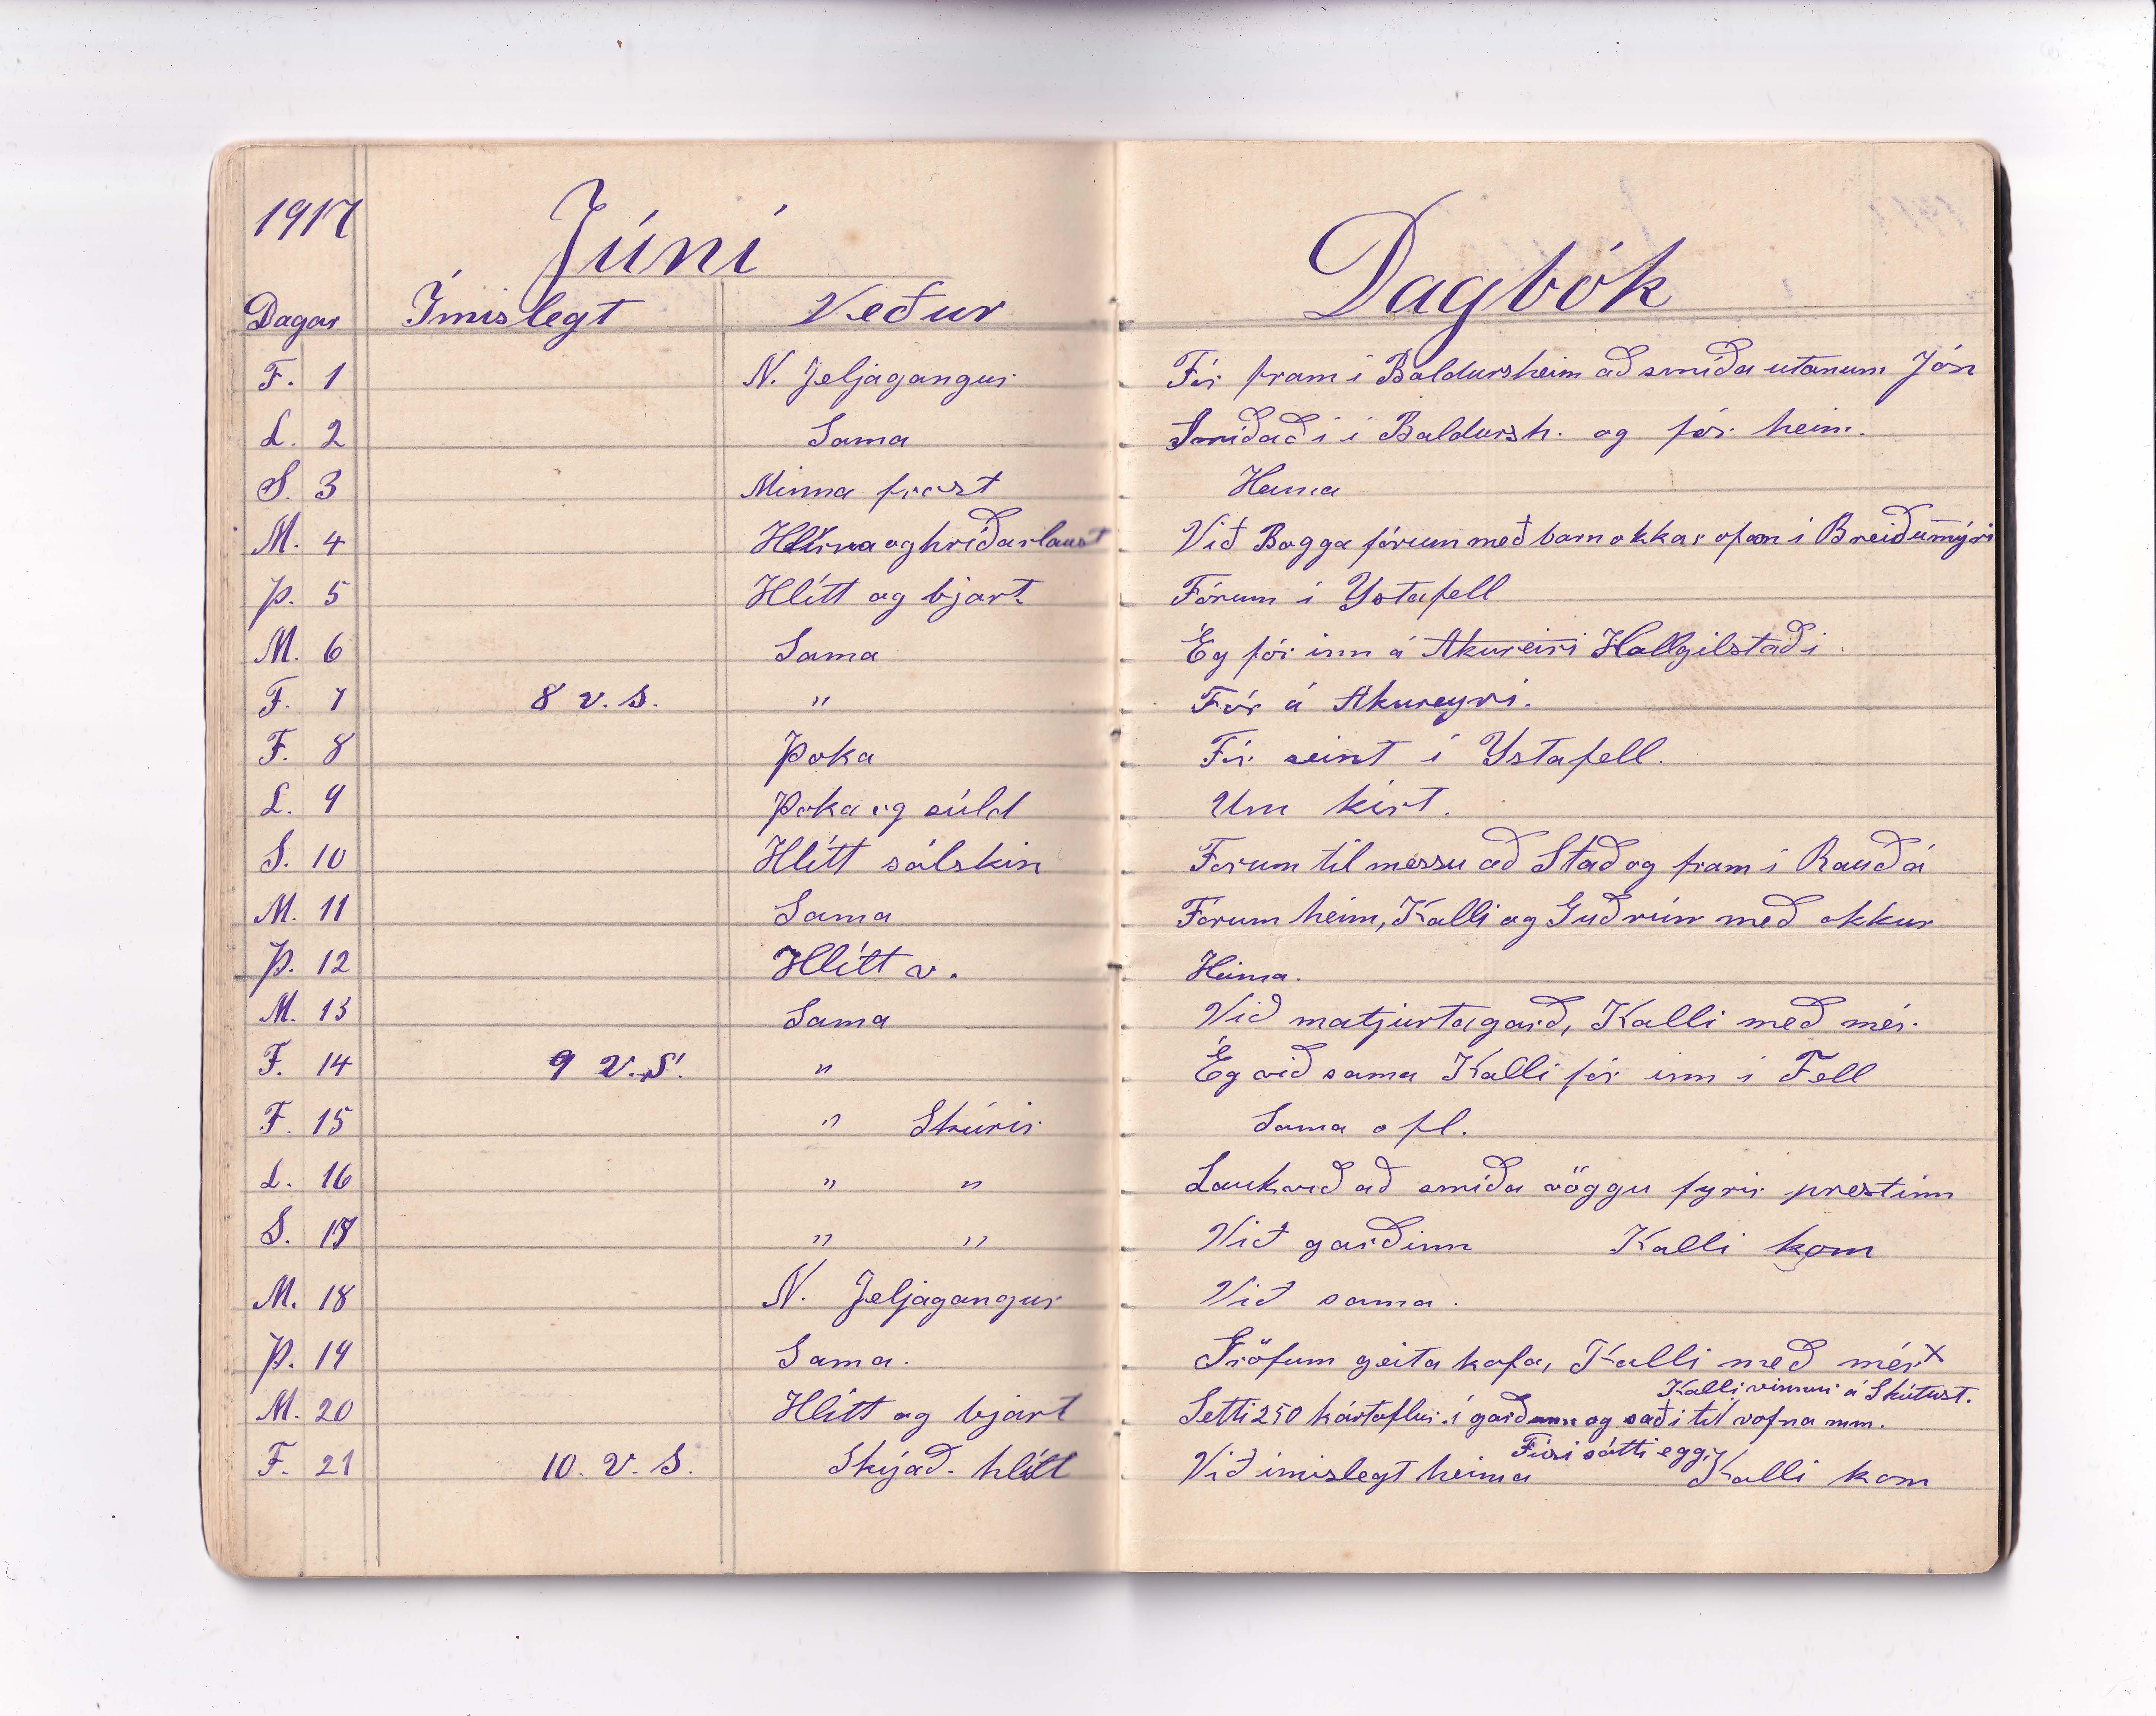 1917
Júní
Dagbók
Dagar Ímislegt Veður
F. 1 N. Jeljagangur Fór fram í Baldursheim að smíða utanum Jón
L. 2 Sama Smíðaði í Baldursh. og fór heim.
S. 3 Minna frost Heima
M. 4 Hlírra og hríðarlaust Við Bogga fórum með barn okkar ofan í Breiðumýri
Þ. 5 Hlítt og bjart Fórum í Ystafell
M. 6 Sama Ég fór inn á Akureiri Hallgilstaði
F. 7 8 v. s. " Fór á Akureyri.
F. 8 Þoka Fór seint í Ystafell.
L. 9 Þoka og súld Um kirt.
S. 10 Hlítt sólskin Forum til messu að Stað og fram í Rauðá
M. 11 Sama Fórum heim, Kalli og Guðrún með okkur
Þ. 12 Hlítt v. Heima.
M. 13 Sama Við matjurtagarð, Kalli með mér.
F. 14 9 v. S. " Ég við sama Kalli fór inn í Fell
F. 15 " Skúrir Sama o fl.
L. 16 " " Lauk við að smíða vöggu fyrir prestinn
S. 17 " " Við garðinn Kalli kom
M. 18 N. Jeljagangur Við sama.
Þ. 19 Sama. Gröfum geitakofa, Kalli með mér x
Kalli vinnur á Skútust.
M. 20 Hlítt og bjart Setti 250 kartöflur í garðinn og saði til rofna mm.
Fúsi sótti egg
F. 21 10. v. s. Skýað. hlítt Við ímislegt heima Kalli kom